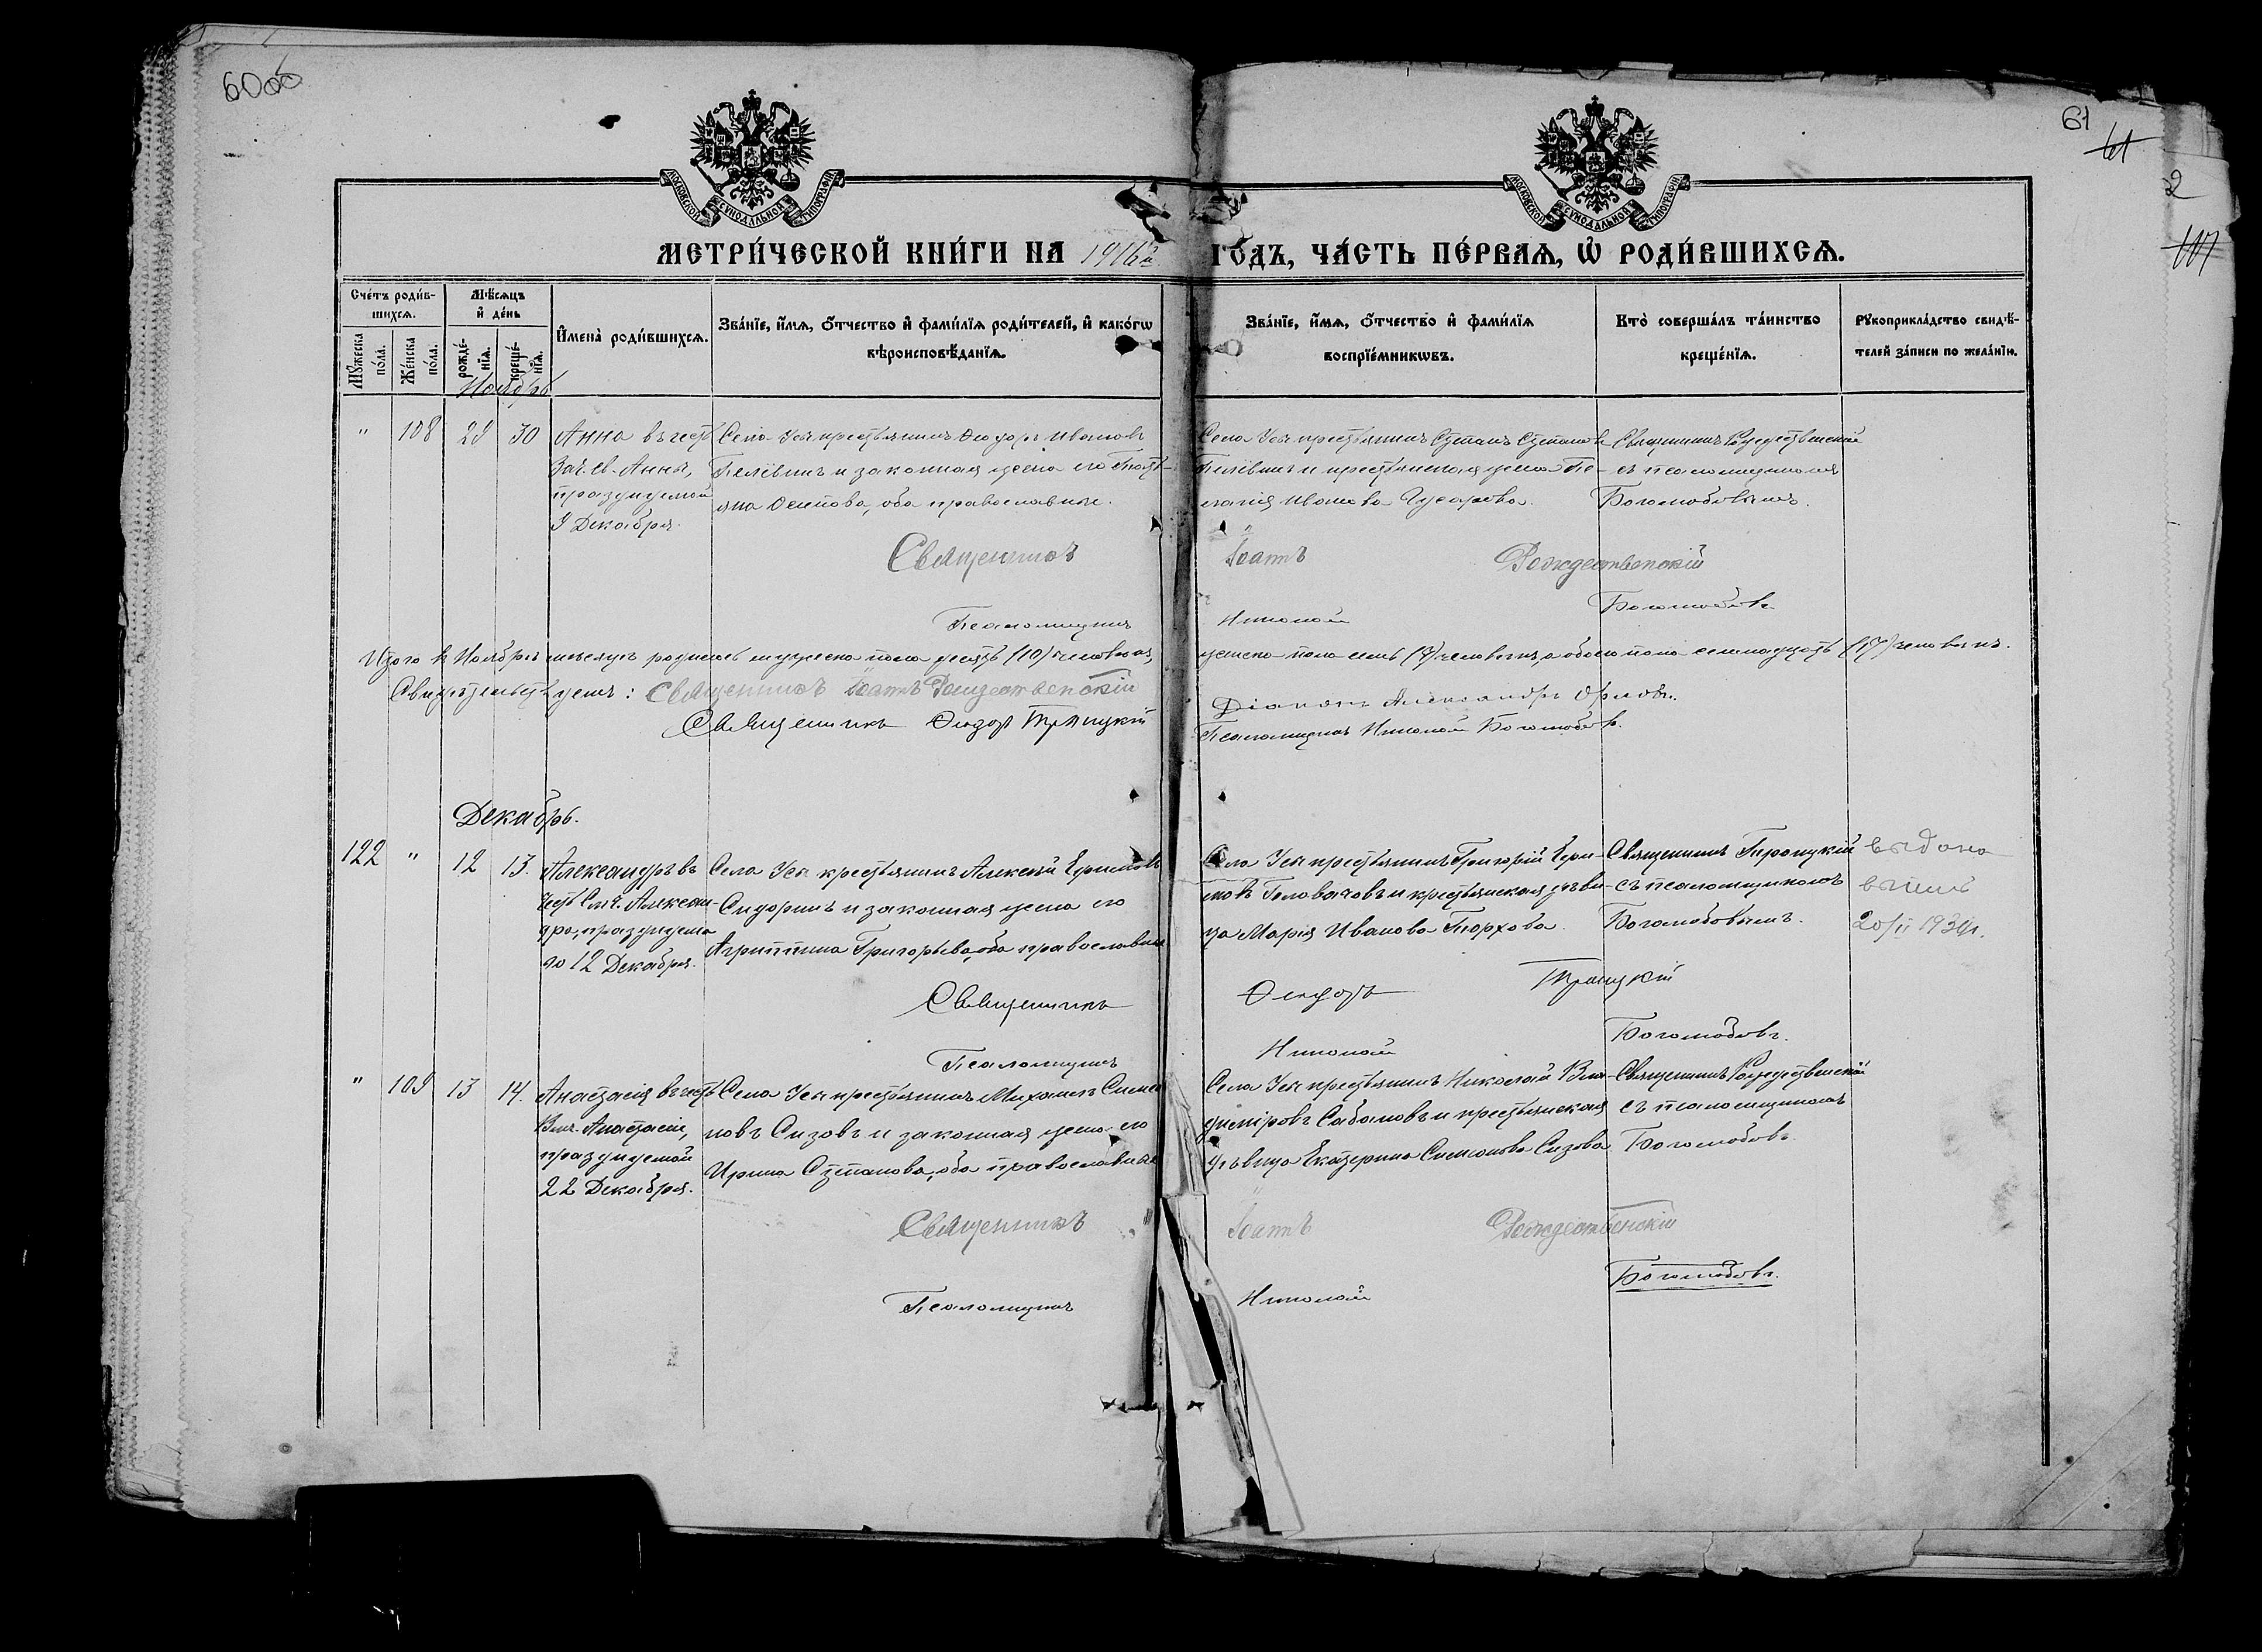 60об
61
61
2
МОСКОВСКОЙ СѴНОДАЛЬНОЙ ТИПОГРАФІИ
МОСКОВСКОЙ СѴНОДАЛЬНОЙ ТИПОГРАФІИ
МЕТРИ́ЧЕСКОЙ КНИ́ГИ НА 1916й ГОДЪ, ЧА́СТЬ ПЕ́РВАѦ, Ѡ РОДИ́ВШИХСѦ.
Сче́тъ роди́в-
шихсѧ.
Мѣ́сѧцъ
и҆ де́нь
Мꙋ́жеска
по́ла.
Же́нска
по́ла.
рожде́-
нїѧ.
креще́-
нїѧ.
И҆мена̀ роди́вшихсѧ.
Зва́нїе, и҆́мѧ, ѻ҆́тчество и҆ фами́лїѧ роди́телей, и҆ како́гѡ
вѣроисповѣ́данїѧ.
Зва́нїе, и҆́мѧ, ѻ҆́тчество и҆ фами́лїѧ
воспрїе́мникѡвъ.
Кто̀ соверша́лъ та́инство
креще́нїѧ.
Рꙋкоприкла́дство свидѣ́-
телей за́писи по жела́нїю.
Ноябрь
" 108 29 30
Анна въ честь
Зач. св. Анны,
празднуемой
9 Декабря.
Села Усы крестьянинъ Ѳеодоръ Ивановъ
и законная жена его Татья-
на Осипова, оба православные.
Села Усы крестьянинъ Степанъ Степановъ
и крестьянская жена Пе-
лагія Иванова Гусарова.
Священникъ Рождественскій
съ псаломщикомъ
Боголюбовымъ.
Священникъ Іоаннъ Рождественскій
Псаломщикъ Николай Боголюбовъ
Итого въ Ноябрѣ мѣсяцѣ родилось мужеска пола десять (10) человѣкъ, женска пола семь (7) человѣкъ, а обоего пола семнадцать (17) человѣкъ.
Свидѣтельствуемъ: Священникъ Іоаннъ Рождественскій
Діаконъ Александръ Орловъ.
Священникъ Ѳеодоръ Троицкій
Псаломщикъ Николай Боголюбовъ.
Декабрь.
122 " 12 13.
Александръ въ
честь Свмч. Алексан-
дра, празднуема-
го 12 Декабря.
Села Усы крестьянинъ Алексѣй Ефимовъ
Сидоринъ и законная жена его
Агриппина Григорьева, оба православные
Села Усы крестьянинъ Григорій Ефи-
мовъ Головачовъ и крестьянская дѣви-
ца Марія Иванова Торхова.
Священникъ Троицкій
съ псаломщикомъ
Боголюбовымъ.
выдана
выпись
20/II 193
Священникъ Ѳеодоръ Троицкій
Псаломщикъ Николай Боголюбовъ.
" 109 13 14.
Анастасія въ честь
Вмч. Анастасіи,
празднуемой
22 Декабря.
Села Усы крестьянинъ Михаилъ Симео-
новъ Сизовъ и законная жена его
Ирина Степанова, оба православные
Села Усы крестьянинъ Николай Вла-
диміровъ Сабановъ и крестьянская
дѣвица Екатерина Симеонова Сизова.
Священникъ Рождественскій
съ псаломщикомъ
Боголюбовъ.
Священникъ Іоаннъ Рождественскій
Псаломщикъ Николай Боголюбовъ.